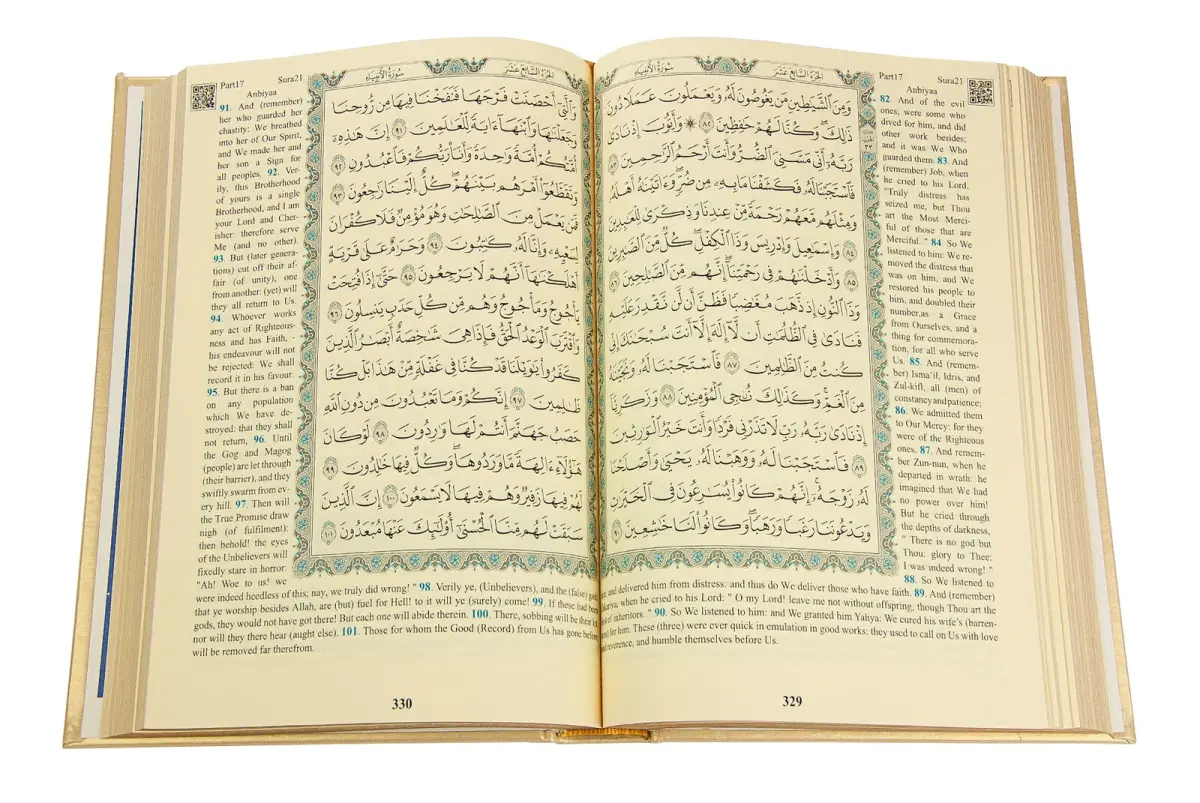 Part17 Sura21
Anbiyaa
الجُزءُ السَّابِعَ عَشَرَ سُورَةُ الأَنبِيَاءِ
وَمِنَ ٱلشَّيَٰطِينِ مَن يَغُوصُونَ لَهُۥ وَيَعْمَلُونَ عَمَلًا دُونَ
ذَٰلِكَ ۖ وَكُنَّا لَهُمْ حَٰفِظِينَ ٨٢ ۞ وَأَيُّوبَ إِذْ نَادَىٰ
رَبَّهُۥٓ أَنِّى مَسَّنِىَ ٱلضُّرُّ وَأَنتَ أَرْحَمُ ٱلرَّٰحِمِينَ ٨٣
فَٱسْتَجَبْنَا لَهُۥ فَكَشَفْنَا مَا بِهِۦ مِن ضُرٍّ ۖ وَءَاتَيْنَٰهُ أَهْلَهُۥ
وَمِثْلَهُم مَّعَهُمْ رَحْمَةً مِّنْ عِندِنَا وَذِكْرَىٰ لِلْعَٰبِدِينَ
٨٤ وَإِسْمَٰعِيلَ وَإِدْرِيسَ وَذَا ٱلْكِفْلِ ۖ كُلٌّ مِّنَ ٱلصَّٰبِرِينَ
٨٥ وَأَدْخَلْنَٰهُمْ فِى رَحْمَتِنَآ ۖ إِنَّهُم مِّنَ ٱلصَّٰلِحِينَ ٨٦
وَذَا ٱلنُّونِ إِذ ذَّهَبَ مُغَٰضِبًا فَظَنَّ أَن لَّن نَّقْدِرَ عَلَيْهِ
فَنَادَىٰ فِى ٱلظُّلُمَٰتِ أَن لَّآ إِلَٰهَ إِلَّآ أَنتَ سُبْحَٰنَكَ إِنِّى
كُنتُ مِنَ ٱلظَّٰلِمِينَ ٨٧ فَٱسْتَجَبْنَا لَهُۥ وَنَجَّيْنَٰهُ
مِنَ ٱلْغَمِّ ۚ وَكَذَٰلِكَ نُۨجِى ٱلْمُؤْمِنِينَ ٨٨ وَزَكَرِيَّآ
إِذْ نَادَىٰ رَبَّهُۥ رَبِّ لَا تَذَرْنِى فَرْدًا وَأَنتَ خَيْرُ ٱلْوَٰرِثِينَ
٨٩ فَٱسْتَجَبْنَا لَهُۥ وَوَهَبْنَا لَهُۥ يَحْيَىٰ وَأَصْلَحْنَا
لَهُۥ زَوْجَهُۥٓ ۚ إِنَّهُمْ كَانُوا۟ يُسَٰرِعُونَ فِى ٱلْخَيْرَٰتِ
وَيَدْعُونَنَا رَغَبًا وَرَهَبًا ۖ وَكَانُوا۟ لَنَا خَٰشِعِينَ ٩٠
82. And of the evil
ones, were some who
dived for him, and did
other work besides;
and it was We Who
guarded them. 83. And
(remember) Job, when
he cried to his Lord,
"Truly distress has
seized me, but Thou
art the Most Merci-
ful of those that are
Merciful. " 84. So We
listened to him: We re-
moved the distress that
was on him, and We
restored his people to
him, and doubled their
number,as a Grace
from Ourselves, and a
thing for commemora-
tion, for all who serve
Us. 85. And (remem-
ber) Isma'il, Idris, and
Zul-kifl, all (men) of
constancy and patience;
86. We admitted them
to Our Mercy: for they
were of the Righteous
ones. 87. And remem-
ber Zun-nun, when he
departed in wrath: he
imagined that We had
no power over him!
But he cried through
the depths of darkness,
" There is no god but
Thou: glory to Thee;
I was indeed wrong! "
88. So We listened to
and delivered him from distress: and thus do We deliver those who have faith. 89. And (remember)
when he cried to his Lord: " O my Lord! leave me not without offspring, though Thou art the
of inheritors. " 90. So We listened to him: and We granted him Yahya: We cured his wife's (barren-
for him. These (three) were ever quick in emulation in good works: they used to call on Us with love
reverence, and humble themselves before Us.
329
Part17 Sura21
Anbiyaa
الجُزءُ السَّابِعَ عَشَرَ سُورَةُ الأَنبِيَاءِ
وَٱلَّتِىٓ أَحْصَنَتْ فَرْجَهَا فَنَفَخْنَا فِيهَا مِن رُّوحِنَا
وَجَعَلْنَٰهَا وَٱبْنَهَآ ءَايَةً لِّلْعَٰلَمِينَ ٩١ إِنَّ هَٰذِهِۦٓ
أُمَّتُكُمْ أُمَّةً وَٰحِدَةً وَأَنَا۠ رَبُّكُمْ فَٱعْبُدُونِ ٩٢
وَتَقَطَّعُوٓا۟ أَمْرَهُم بَيْنَهُمْ ۖ كُلٌّ إِلَيْنَا رَٰجِعُونَ ٩٣
فَمَن يَعْمَلْ مِنَ ٱلصَّٰلِحَٰتِ وَهُوَ مُؤْمِنٌ فَلَا كُفْرَانَ
لِسَعْيِهِۦ وَإِنَّا لَهُۥ كَٰتِبُونَ ٩٤ وَحَرَٰمٌ عَلَىٰ قَرْيَةٍ
أَهْلَكْنَٰهَآ أَنَّهُمْ لَا يَرْجِعُونَ ٩٥ حَتَّىٰٓ إِذَا فُتِحَتْ
يَأْجُوجُ وَمَأْجُوجُ وَهُم مِّن كُلِّ حَدَبٍ يَنسِلُونَ ٩٦
وَٱقْتَرَبَ ٱلْوَعْدُ ٱلْحَقُّ فَإِذَا هِىَ شَٰخِصَةٌ أَبْصَٰرُ ٱلَّذِينَ
كَفَرُوا۟ يَٰوَيْلَنَا قَدْ كُنَّا فِى غَفْلَةٍ مِّنْ هَٰذَا بَلْ كُنَّا
ظَٰلِمِينَ ٩٧ إِنَّكُمْ وَمَا تَعْبُدُونَ مِن دُونِ ٱللَّهِ
حَصَبُ جَهَنَّمَ أَنتُمْ لَهَا وَٰرِدُونَ ٩٨ لَوْ كَانَ
هَٰٓؤُلَآءِ ءَالِهَةً مَّا وَرَدُوهَا ۖ وَكُلٌّ فِيهَا خَٰلِدُونَ ٩٩
لَهُمْ فِيهَا زَفِيرٌ وَهُمْ فِيهَا لَا يَسْمَعُونَ ١٠٠ إِنَّ ٱلَّذِينَ
سَبَقَتْ لَهُم مِّنَّا ٱلْحُسْنَىٰٓ أُو۟لَٰٓئِكَ عَنْهَا مُبْعَدُونَ ١٠١
91. And (remember)
her who guarded her
chastity: We breathed
into her of Our Spirit,
and We made her and
her son a Sign for
all peoples. 92. Ver-
ily, this Brotherhood
of yours is a single
Brotherhood, and I am
your Lord and Cher-
isher: therefore serve
Me (and no other).
93. But (later genera-
tions) cut off their af-
fair (of unity), one
from another: (yet) will
they all return to Us.
94. Whoever works
any act of Righteous-
ness and has Faith, -
his endeavour will not
be rejected: We shall
record it in his favour.
95. But there is a ban
on any population
which We have de-
stroyed: that they shall
not return, 96. Until
the Gog and Magog
(people) are let through
(their barrier), and they
swiftly swarm from ev-
ery hill. 97. Then will
the True Promise draw
nigh (of fulfilment):
then behold! the eyes
of the Unbelievers will
fixedly stare in horror:
"Ah! Woe to us! we
were indeed heedless of this; nay, we truly did wrong! " 98. Verily ye, (Unbelievers), and the (false) gods
that ye worship besides Allah, are (but) fuel for Hell! to it will ye (surely) come! 99. If these had been
gods, they would not have got there! But each one will abide therein. 100. There, sobbing will be their lot,
nor will they there hear (aught else). 101. Those for whom the Good (Record) from Us has gone before,
will be removed far therefrom.
330